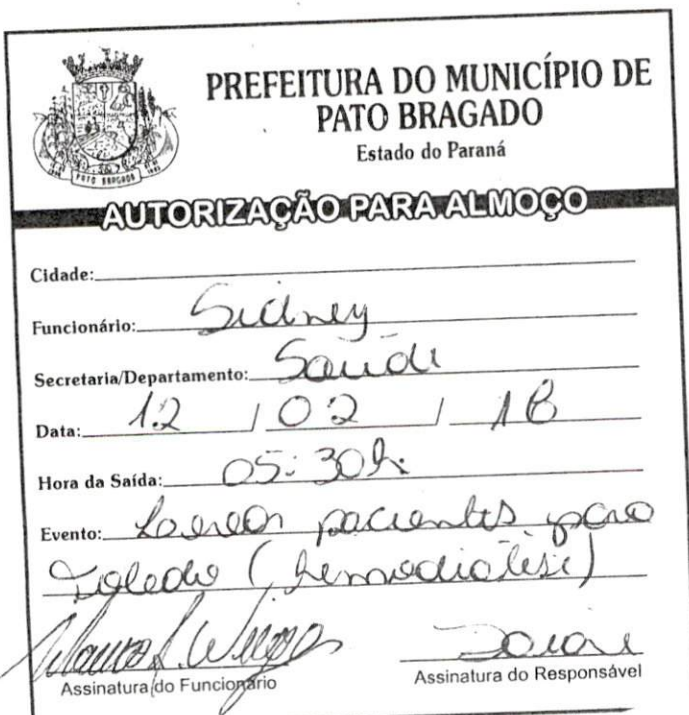 PREFEITURA DO MUNICÍPIO DE
PATO BRAGADO
Estado do Paraná
PATO BRAGADO
AUTORIZAÇÃO PARA ALMOÇO
Cidade:
Funcionário: Sidney
Secretaria/Departamento: Saúde
Data: 12 / 02 / 18
Hora da Saída: 05:30h.
Evento: pacientes para
Toledo (hemodialise)
Assinatura do Funcionário
Assinatura do Responsável